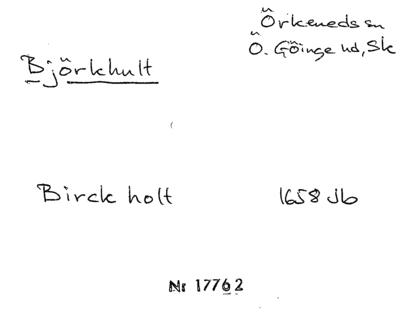 Örkeneds sn
Ö. Göinge hd, Sk
Björkhult
Birck holt 1658 Jb
Nr 17762